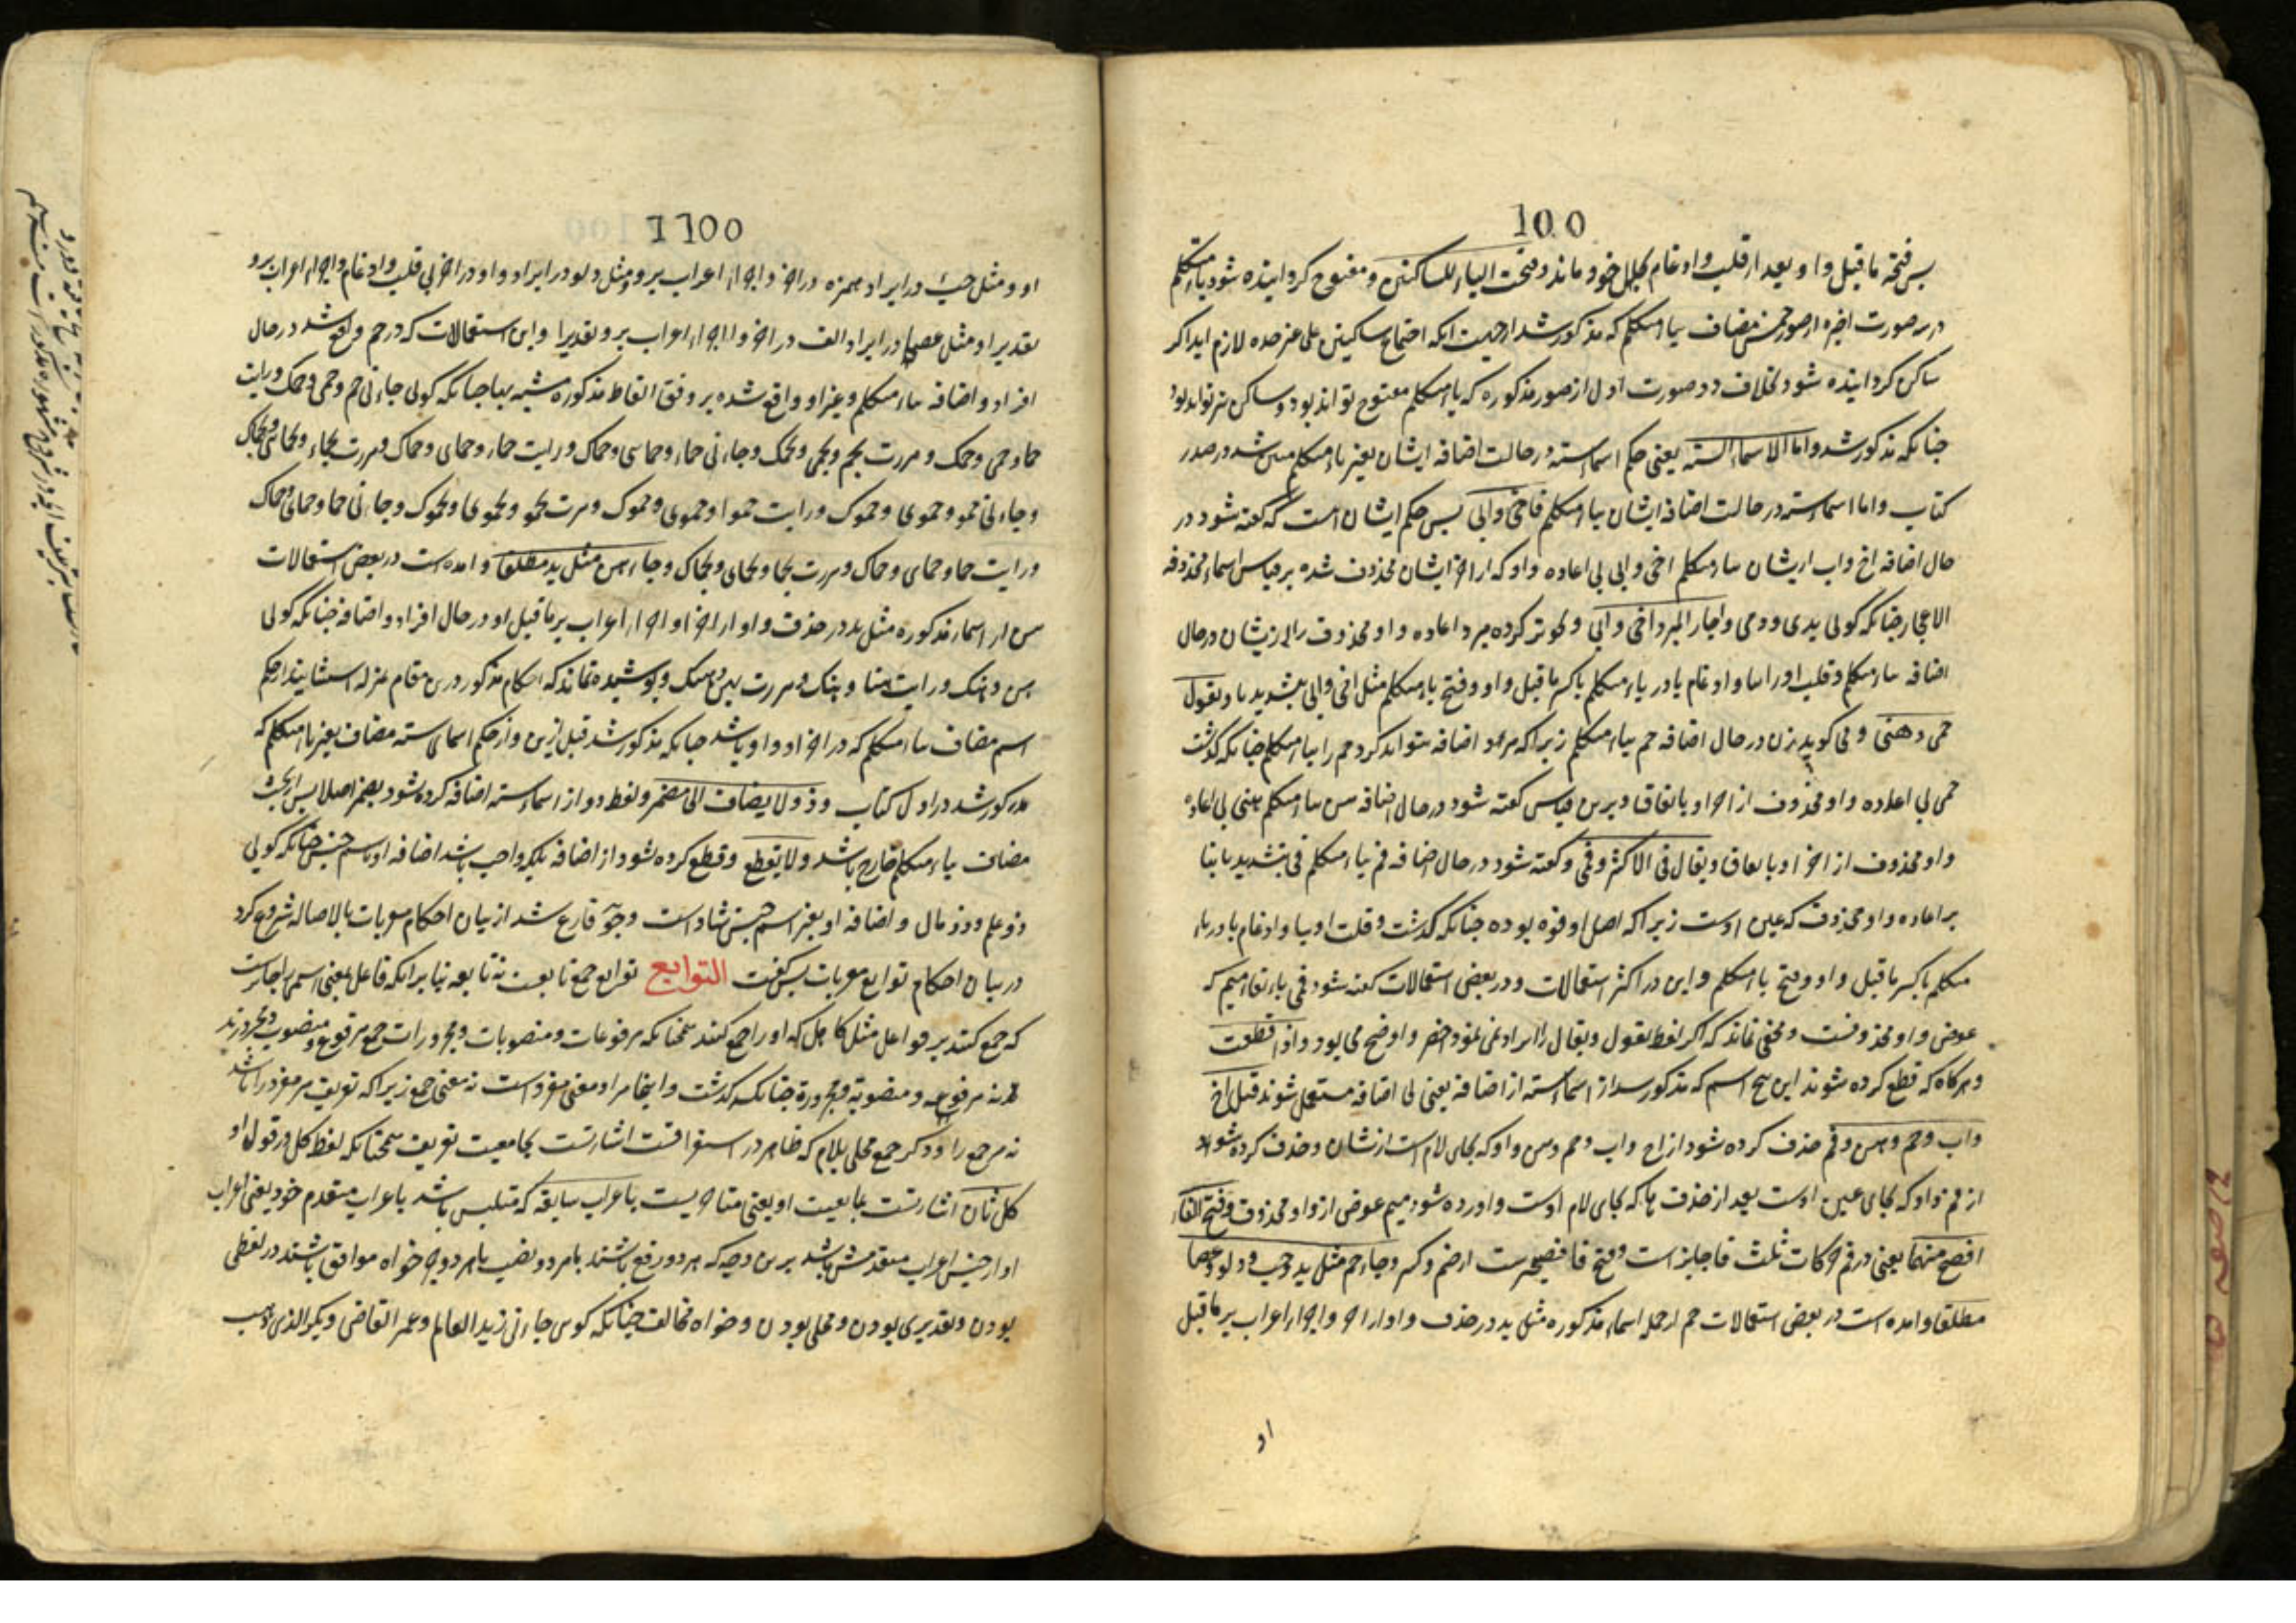 100
پس فتحه ما قبل واو بعد از قلب و ادغام بحال خود ماند و فتحت الیاء للساکنین و مفتوح گردانیده شود یاء متکلم
در سه صورت اخیره از صور خمس مضاف بیاء متکلم که مذکور شد از جهت آنکه اجتماع ساکنین علی غیر حده لازم آید اگر
ساکن گردانیده شود بخلاف دو صورت اول از صور مذکوره که یاء متکلم مفتوح تواند بود و ساکن نیز تواند بود
چنانکه مذکور شد و اما الاسماء الستة یعنی حکم اسماء سته در حالت اضافه ایشان بغیر یاء متکلم مبین شد در صدر
کتاب و اما اسماء سته در حالت اضافه ایشان بیاء متکلم فاخی وابی پس حکم ایشان است که گفته شود در
حال اضافه اخ و اب ازیشان بیاء متکلم اخی و ابی بی اعاده واو که از اخر ایشان محذوف شده بر قیاس اسماء محذوفة
الاعجاز چنانکه گوئی یدی و دمی و اجاز المبرد اخی وابی و تجویز کرده مبرد اعاده واو محذوف را ازیشان در حال
اضافه بیاء متکلم و قلب او را بیا و ادغام یا در یاء متکلم با کسر ما قبل واو و فتح یاء متکلم مثل اخی و ابی بتشدید یا و تقول
حمی وهنی و می گوید زن در حال اضافه حم بیاء متکلم زیرا که مرد اضافه نتواند کرد حم را بیاء متکلم چنانکه گذشت
حمی بی اعاده واو محذوف از اخر او باتفاق و برین قیاس گفته شود در حال اضافه هن بیاء متکلم هنی بی اعاده
واو محذوف از اخر او باتفاق و یقال فی الاکثر وفمی و گفته شود در حال اضافه فم بیاء متکلم فی بتشدید یا بنا
بر اعاده واو محذوف که عین اوست زیرا که اصل او فوه بوده چنانکه گذشت و قلب او بیا و ادغام یا در یاء
متکلم با کسر ما قبل واو و فتح یاء متکلم و این در اکثر استعمالات و در بعض استعمالات گفته شود فمی بابقاء میم که
عوض واو محذوفست و مخفی نماند که اگر لفظ تقول و یقال را ایراد نمی نمود اخصر و اوضح می بود و اذا قطعت
و هرگاه که قطع کرده شوند این پنج اسم که مذکور شد از اسماء سته از اضافه یعنی بی اضافه مستعمل شوند قیل اخ
واب وحم وهن وفم حذف کرده شود از اخ و اب و حم و هن واو که بجای لام است ازیشان و حذف کرده شود
از فم واو که بجای عین اوست بعد از حذف ها که بجای لام اوست و اورده شود میم عوض از واو محذوف وفتح الفاء
افصح منهما یعنی در فم حرکات ثلث فا جایز است و فتح فا فصیحترست از ضم و کسر وجاء حم مثل ید وخبء ودلو وعصا
مطلقا و امده است در بعض استعمالات حم از جمله اسماء مذکوره مثل ید در حذف واو از اخر و اجراء اعراب بر ما قبل
او
1100
او و مثل خبء در ایراد همزه در اخر و اجراء اعراب بر و مثل دلو در ایراد واو در اخر بی قلب و ادغام و اجراء اعراب برو
تقدیرا و مثل عصا در ایراد الف در اخر و اجراء اعراب برو تقدیرا و این استعمالات که در حم واقع شد در حال
افراد و اضافه بیاء متکلم و غیر او واقع شده بر وفق الفاظ مذکوره مشبه بها چنانکه گوئی جاءنی حم وحمی وحمک ورایت
حما وحمی وحمک و مررت بحم وبحمی وبحمک وجاءنی حماء وحمائی وحمائک ورایت حماء وحمائی وحمائک ومررت بحماء وبحمائی وبحمائک
وجاءنی حمو وحموی وحموک ورایت حموا وحموی وحموک ومررت بحمو وبحموی وبحموک وجاءنی حما وحمای وحماک
ورایت حما وحمای وحماک ومررت بحما وبحمای وبحماک وجاء هن مثل ید مطلقا و امده است در بعض استعمالات
هن از اسماء مذکوره مثل ید در حذف واو از اخر او و اجراء اعراب بر ما قبل او در حال افراد و اضافه چنانکه گوئی
هن وهنک ورایت هنا وهنک ومررت بهن وهنک و پوشیده نماند که احکام مذکور درین مقام بمنزله استثنایند از حکم
اسم مضاف بیاء متکلم که در اخر او واو باشد چنانکه مذکور شد قبل ازین و از حکم اسمای سته مضاف بغیر یاء متکلم که
مذکور شد در اول کتاب وذو لا یضاف الی مضمر و لفظ ذو از اسماء سته اضافه کرده نشود بضمیر اصلا پس از بحث
مضاف بیاء متکلم خارج باشد ولا یقطع و قطع کرده نشود از اضافه بلکه واجب باشد اضافه او باسم جنس چنانکه گوئی
ذو علم وذو مال و اضافه او بغیر اسم جنس شاذ است و چون فارغ شد از بیان احکام معربات بالاصاله شروع کرد
در بیان احکام توابع معربات پس گفت التوابع توابع جمع تابعست نه تابعه بنا برانکه فاعل بمعنی اسمی جایزست
که جمع کنند بر فواعل مثل کاهل که او را جمع کنند همچنانکه مرفوعات و منصوبات و مجرورات جمع مرفوع و منصوب و مجرورند
نه مرفوعه و منصوبه و مجروره چنانکه گذشت و اینجا مراد معنی مفرد است نه معنی جمع زیرا که تعریف مر مفرد را باشد
نه مر جمع را و ذکر جمع محلی بلام که ظاهر در استغراقست اشارتست بجامعیت تعریف همچنانکه لفظ کل در قول او
کل ثان اشارتست بمانعیت او یعنی متاخریست باعراب سابقه که متلبس باشد باعراب متقدم خود یعنی اعراب
او از جنس اعراب متقدمش باشد برین وجه که هر دو رفع باشند یا هر دو نصب یا هر دو جر خواه موافق باشند در لفظی
بودن و تقدیری بودن و محلی بودن و خواه مخالف چنانکه گوئی جاءنی زید العالم وعمر القاضی وبکر الذی ذهب